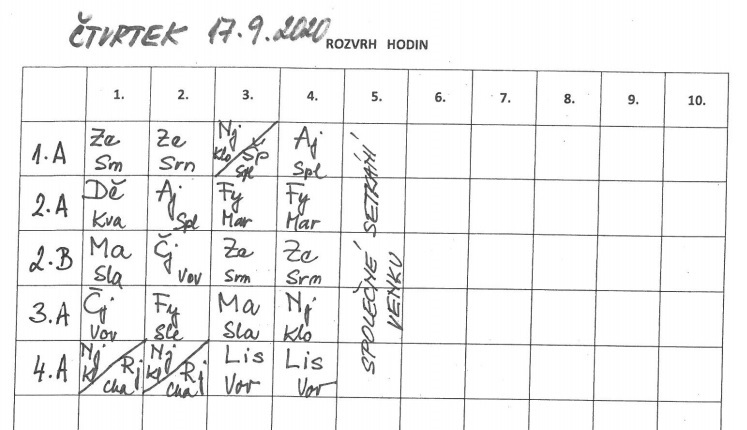 ČTVRTEK 17.9.2020 ROZVRH HODIN
1. 2. 3. 4. 5. 6. 7. 8. 9. 10.
1.A Ze Ze Nj Šp Aj
Srn Srn Klo Spl Spl
2.A Dě Aj Fy Fy
Kva Spl Mar Mar
2.B Ma Čj Ze Ze
Sla Vov Srn Srn
3.A Čj Fy Ma Nj
Vov Sle Sla Klo
4.A Nj Rj Nj Rj Lis Lis
Kl cha Kl cha Vov Vov
SPOLEČNÉ SETKÁNÍ
VENKU